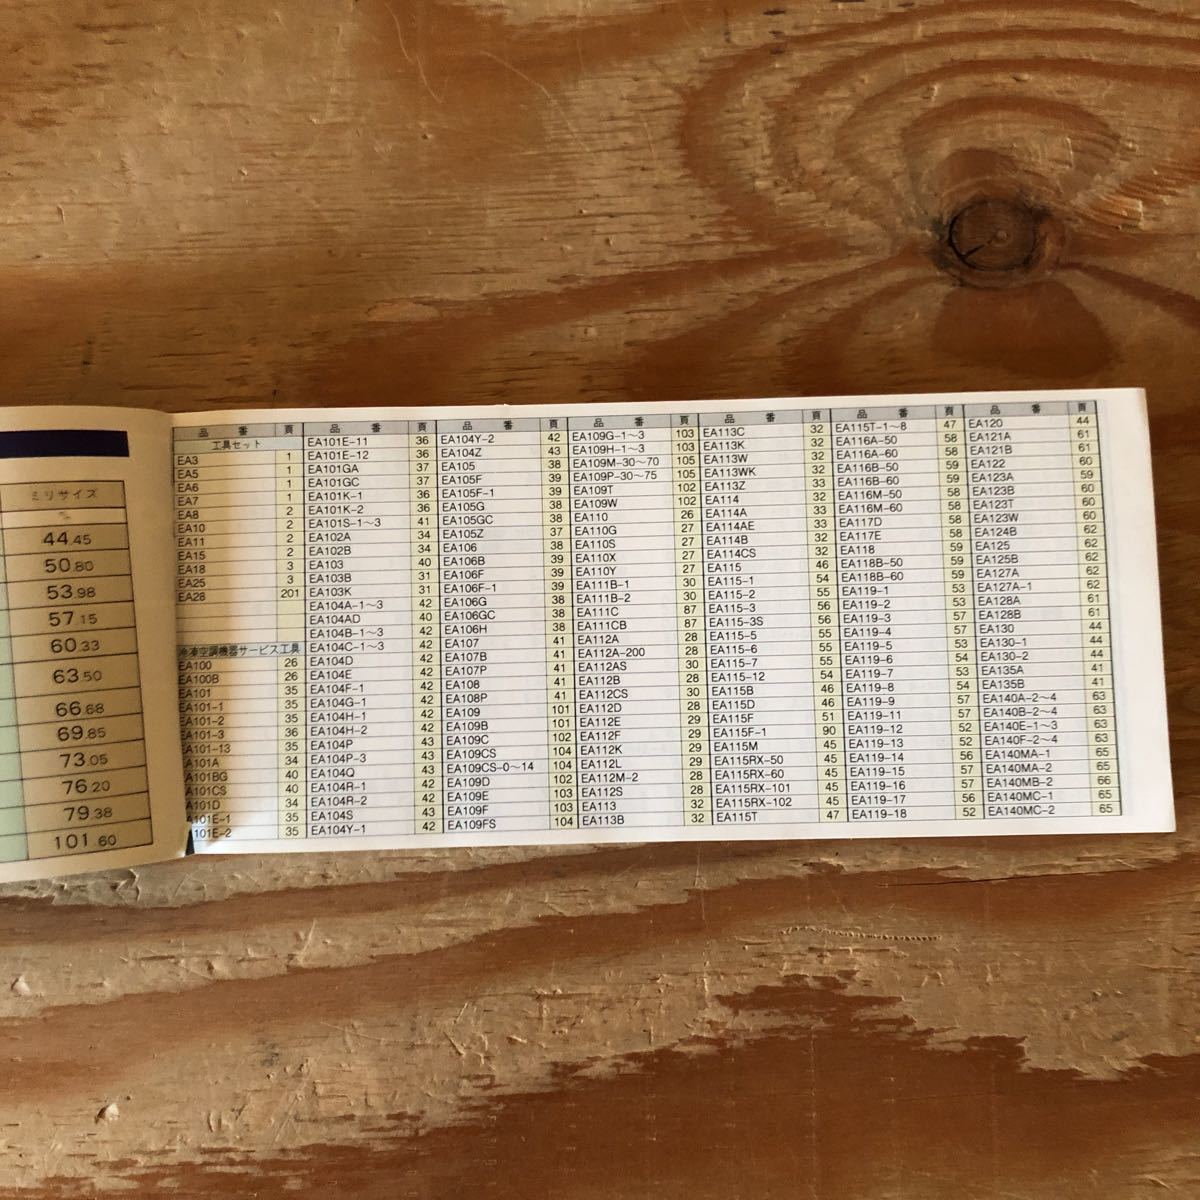 ミリサイズ
㎜
44.45
50.80
53.98
57.15
60.33
63.50
66.68
69.85
73.05
76.20
79.38
101.60
品 番 頁
工具セット
EA3 1
EA5 1
EA6 1
EA7 1
EA8 2
EA10 2
EA11 2
EA15 2
EA18 3
EA25 3
EA28 201
冷凍空調機器サービス工具
EA100 26
EA100B 26
EA101 35
EA101-1 35
EA101-2 35
EA101-3 36
EA101-13 35
EA101A 34
EA101BG 40
EA101CS 40
EA101D 34
EA101E-1 35
101E-2 35
品 番 頁
EA101E-11 36
EA101E-12 36
EA101GA 37
EA101GC 37
EA101K-1 36
EA101K-2 36
EA101S-1～3 41
EA102A 34
EA102B 34
EA103 40
EA103B 31
EA103K 31
EA104A-1～3 42
EA104AD 40
EA104B-1～3 42
EA104C-1～3 42
EA104D 42
EA104E 42
EA104F-1 42
EA104G-1 42
EA104H-1 42
EA104H-2 42
EA104P 43
EA104P-3 43
EA104Q 43
EA104R-1 42
EA104R-2 42
EA104S 43
EA104Y-1 42
品 番 頁
EA104Y-2 42
EA104Z 43
EA105 38
EA105F 39
EA105F-1 39
EA105G 38
EA105GC 38
EA105Z 37
EA106 38
EA106B 39
EA106F 39
EA106F-1 39
EA106G 38
EA106GC 38
EA106H 38
EA107 41
EA107B 41
EA107P 41
EA108 41
EA108P 41
EA109 101
EA109B 101
EA109C 102
EA109CS 104
EA109CS-0～14 104
EA109D 102
EA109E 103
EA109F 103
EA109FS 104
品 番 頁
EA109G-1～3 103
EA109H-1～3 103
EA109M-30～70 105
EA109P-30～75 105
EA109T 102
EA109W 102
EA110 26
EA110G 27
EA110S 27
EA110X 27
EA110Y 27
EA111B-1 30
EA111B-2 30
EA111C 87
EA111CB 87
EA112A 28
EA112A-200 28
EA112AS 30
EA112B 28
EA112CS 30
EA112D 28
EA112E 29
EA112F 29
EA112K 29
EA112L 29
EA112M-2 28
EA112S 28
EA113 32
EA113B 32
品 番 頁
EA113C 32
EA113K 32
EA113W 32
EA113WK 32
EA113Z 33
EA114 32
EA114A 33
EA114AE 33
EA114B 32
EA114CS 32
EA115 46
EA115-1 54
EA115-2 55
EA115-3 56
EA115-3S 56
EA115-5 55
EA115-6 55
EA115-7 55
EA115-12 54
EA115B 46
EA115D 46
EA115F 51
EA115F-1 90
EA115M 45
EA115RX-50 45
EA115RX-60 45
EA115RX-101 45
EA115RX-102 45
EA115T 47
品 番 頁
EA115T-1～8 47
EA116A-50 58
EA116A-60 58
EA116B-50 59
EA116B-60 59
EA116M-50 58
EA116M-60 58
EA117D 58
EA117E 58
EA118 59
EA118B-50 59
EA118B-60 59
EA119-1 53
EA119-2 53
EA119-3 57
EA119-4 57
EA119-5 53
EA119-6 53
EA119-7 54
EA119-8 54
EA119-9 57
EA119-11 57
EA119-12 52
EA119-13 52
EA119-14 56
EA119-15 57
EA119-16 57
EA119-17 56
EA119-18 52
品 番 頁
EA120 44
EA121A 61
EA121B 61
EA122 60
EA123A 59
EA123B 60
EA123T 60
EA123W 60
EA124B 62
EA125 62
EA125B 62
EA127A 62
EA127A-1 62
EA128A 61
EA128B 61
EA130 44
EA130-1 44
EA130-2 44
EA135A 41
EA135B 41
EA140A-2～4 63
EA140B-2～4 63
EA140E-1～3 63
EA140F-2～4 63
EA140MA-1 65
EA140MA-2 65
EA140MB-2 66
EA140MC-1 65
EA140MC-2 65